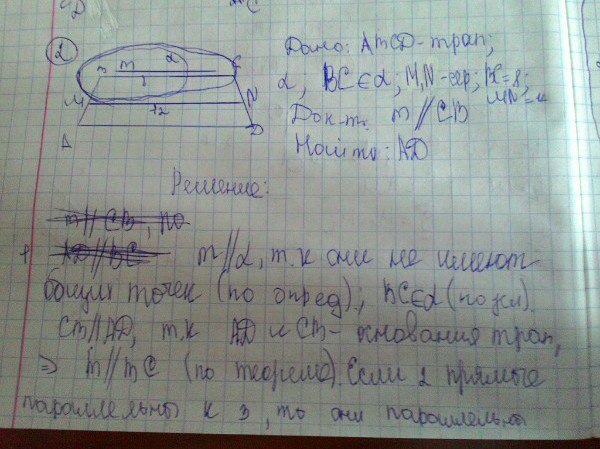 2
Дано: АВСD - трап;
α; ВС∈α; M,N - сер; BC=8;
MN=12
Док-ть: m // CB
Найти: AD
B m α C
8
M N
12
A D
Решение:
m // CB, по
AD // BC m // α, т.к они не имеют
общих точек (по опред); BC∈α (по усл).
CB // AD, т.к AD и CB - основания трап,
⇒ m // BC (по теореме). Если 2 прямые
параллельны к 3, то они параллельны